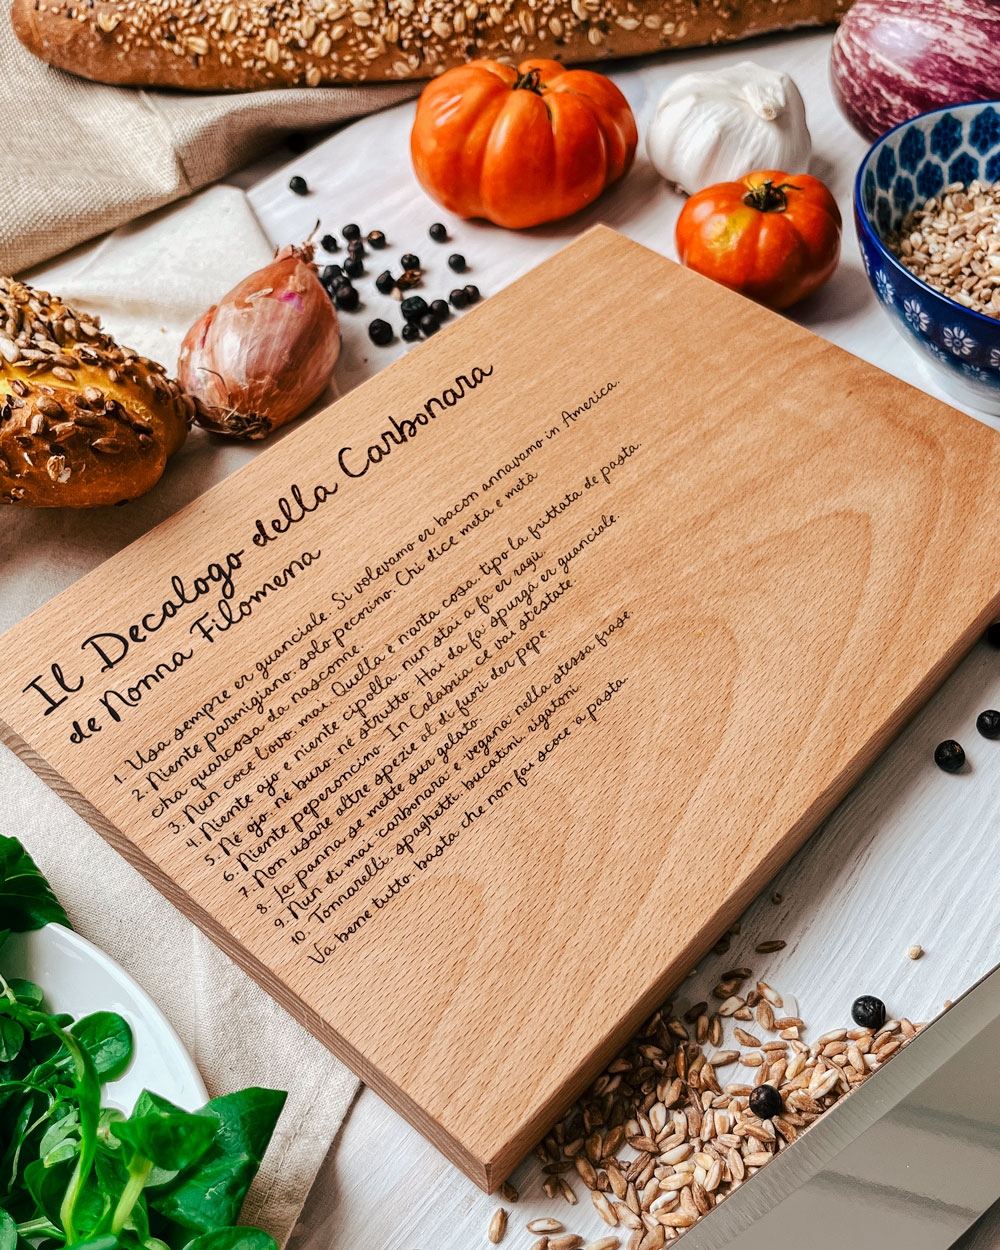 Il Decalogo della Carbonara
de Nonna Filomena
1. Usa sempre er guanciale. Si volevamo er bacon annavamo in America.
2. Niente parmigiano, solo pecorino. Chi dice metà e metà
c'ha quarcosa da nasconne.
3. Nun coce l'ovo, mai. Quella è n'arta cosa, tipo la frittata de pasta.
4. Niente ajo e niente cipolla, nun stai a fa er ragù.
5. Né ojo, né buro, né strutto. Hai da fa' spurgá er guanciale.
6. Niente peperoncino. In Calabria ce vai st'estate.
7. Non usare altre spezie al di fuori der pepe.
8. La panna se mette sur gelato.
9. Nun di mai 'carbonara' e 'vegana' nella stessa frase.
10. Tonnarelli, spaghetti, bucatini, rigatoni.
Va bene tutto, basta che non fai scoce 'a pasta.